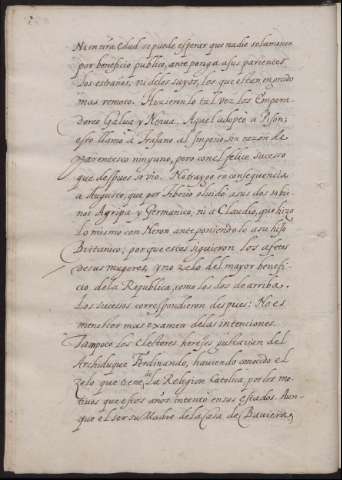 Ni en esta edad se puede esperar que nadie solamente
por beneficio publico, anteponga a sus parientes
los estraños, ni de los suyos, los que estan en grado
mas remoto. Hizieronlo tal vez los Empera-
dores Galua y Nerua. Aquel adoptò a Pison;
esto llamò a Trajano al Imperio, sin razon de
parentesco ninguno, pero con el felice sucesso
que despues se vio. No trayo en consequencia
a Augusto, que por Tiberio oluidò a sus dos sobri-
nos Agripa y Germanico, ni a Claudio, que hizo
lo mismo con Neron anteponiendolo a su hijo
Britanico; porque estos siguieron los afetos
de sus mugeres, y no zelo del mayor benefi-
cio de la Republica, como los dos de arriba.
Los sucesos correspondieron despues: No es
menester mas examen de las intenciones.
Tampoco los Eletores herejes gustarien del
Archiduque Ferdinando, hauiendo conocido el
zelo que tiene de la Religion Catolica, por los mo-
tiuos que estos años intentò en sus estados. Aun-
que el ser su Madre de la Casa de Bauiera,